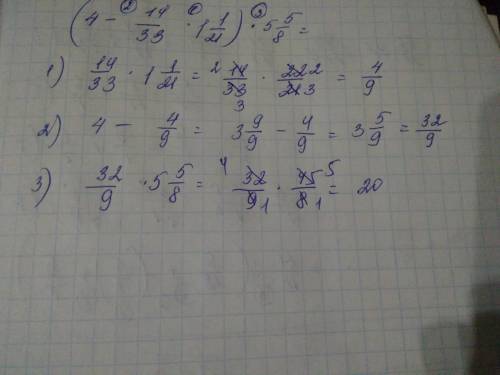 (4 - 14/33 · 1 1/21) · 5 5/8 =
1) 14/33 · 1 1/21 = 14/33 · 22/21 = 4/9
2) 4 - 4/9 = 3 9/9 - 4/9 = 3 5/9 = 32/9
3) 32/9 · 5 5/8 = 32/9 · 45/8 = 20